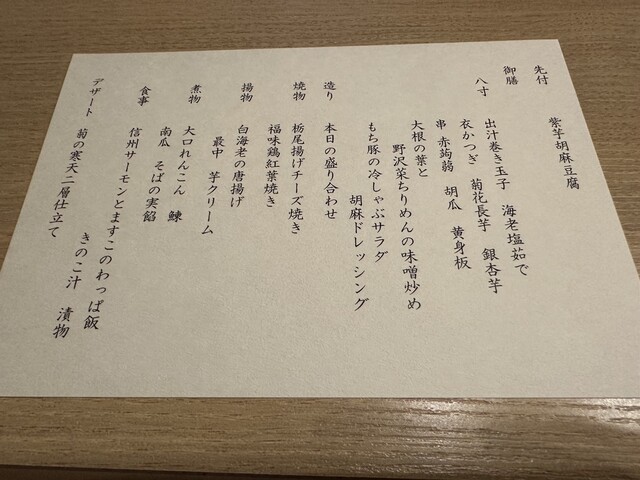 先付
紫芋胡麻豆腐
御膳
八寸
出汁巻き玉子 海老塩茹で
衣かつぎ 菊花長芋 銀杏芋
串 赤蒟蒻 胡瓜 黄身板
大根の葉と
野沢菜ちりめんの味噌炒め
もち豚の冷しゃぶサラダ
胡麻ドレッシング
造り 本日の盛り合わせ
焼物 栃尾揚げチーズ焼き
福味鶏紅葉焼き
揚物 白海老の唐揚げ
最中 芋クリーム
煮物 大口れんこん 鰊
南瓜 そばの実餡
食事 信州サーモンとますこのわっぱ飯
きのこ汁 漬物
デザート 菊の寒天二層仕立て